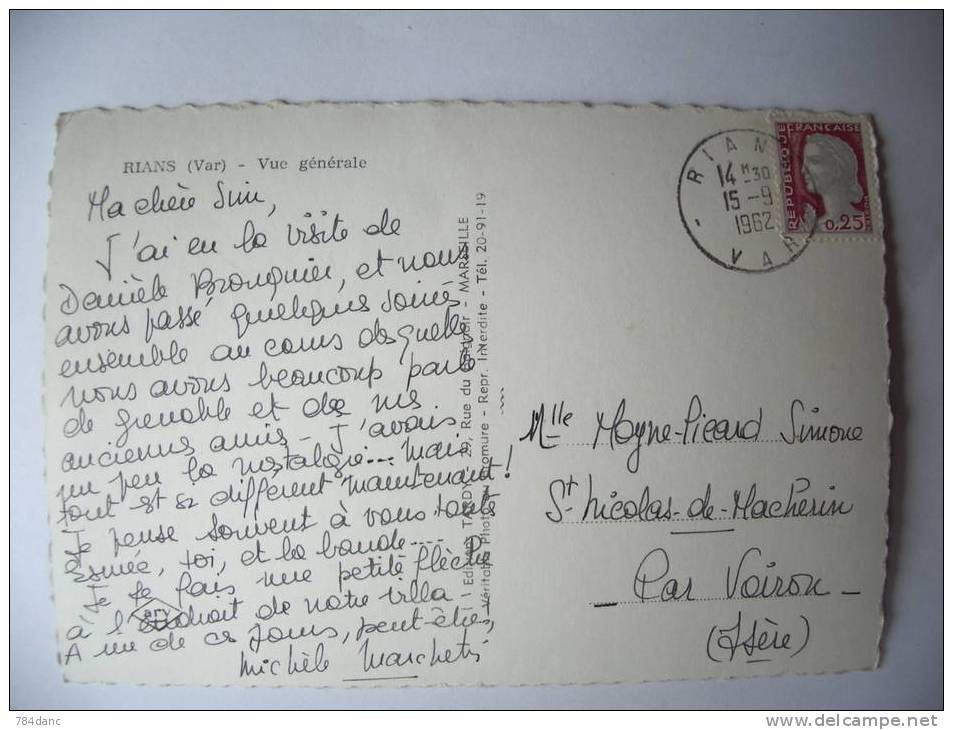 RIANS (Var) - Vue générale
Ma chère Sim,
J'ai eu la visite de
Danièle Bronquier, et nous
avons passé quelques soirées
ensemble au cours desquelles
nous avons beaucoup parlé
de grenoble et des mes
anciennes amis - J'avais
un peu la nostalgie... Mais
tout est si différent maintenant!
Je pense souvent à vous toutes
toi, et la bande....
Je te fais une petite flèche
à l'endroit de notre villa -
A un de ces jours, peut-être,
Michèle Marchetti
Edition TARDY - 29, Rue du - MARSEILLE
Véritable - Repr. Interdite - Tél. 20-91-19
RIANS
14 H 30
15 - 9
1962
VAR
REPUBLIQUE FRANÇAISE
0,25
Mlle Moyne-Picard Simone
St-Nicolas-de-Macherin
Par Voiron -
(Isère)
784danc
www.delcampe.net